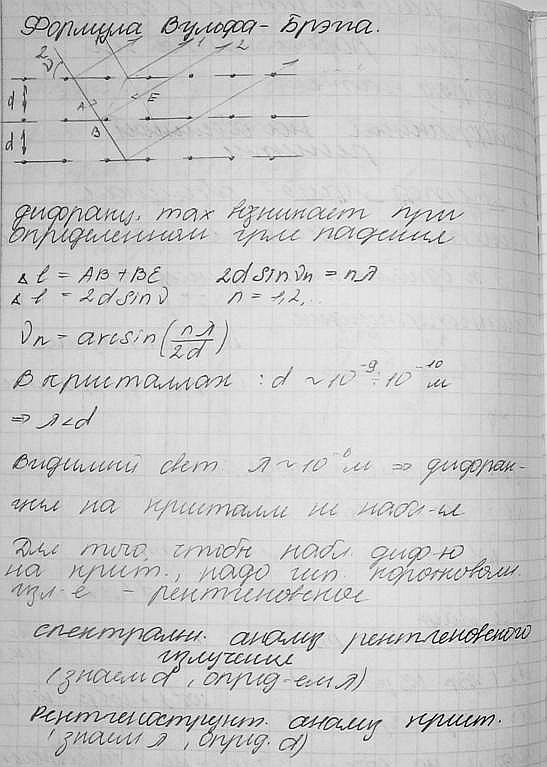 Формула Вульфа-Брэгга.
2 1 1 2 1
ϑ
d A E
B
d
дифракц. max взникает при
определенном угле падения
Δl = AB+BE 2d sin ϑn = nλ
Δl = 2d sin ϑ n = 1,2,...
ϑn = arcsin(nλ/2d)
В кристаллах : d ~ 10⁻⁹ ÷ 10⁻¹⁰ м
⇒ λ<d
Видимый свет λ ~ 10⁻⁶ м ⇒ дифрак-
ция на кристалле не набл-ся
Для того, чтобы набл. диф-ю
на крист., надо исп. коротковолн.
изл-е - рентгеновское
спектральн. анализ рентгеновского
излучения
(знаем d, опред-ем λ)
Рентгеноструктт. анализ крист.
(знаем λ, опред. d)